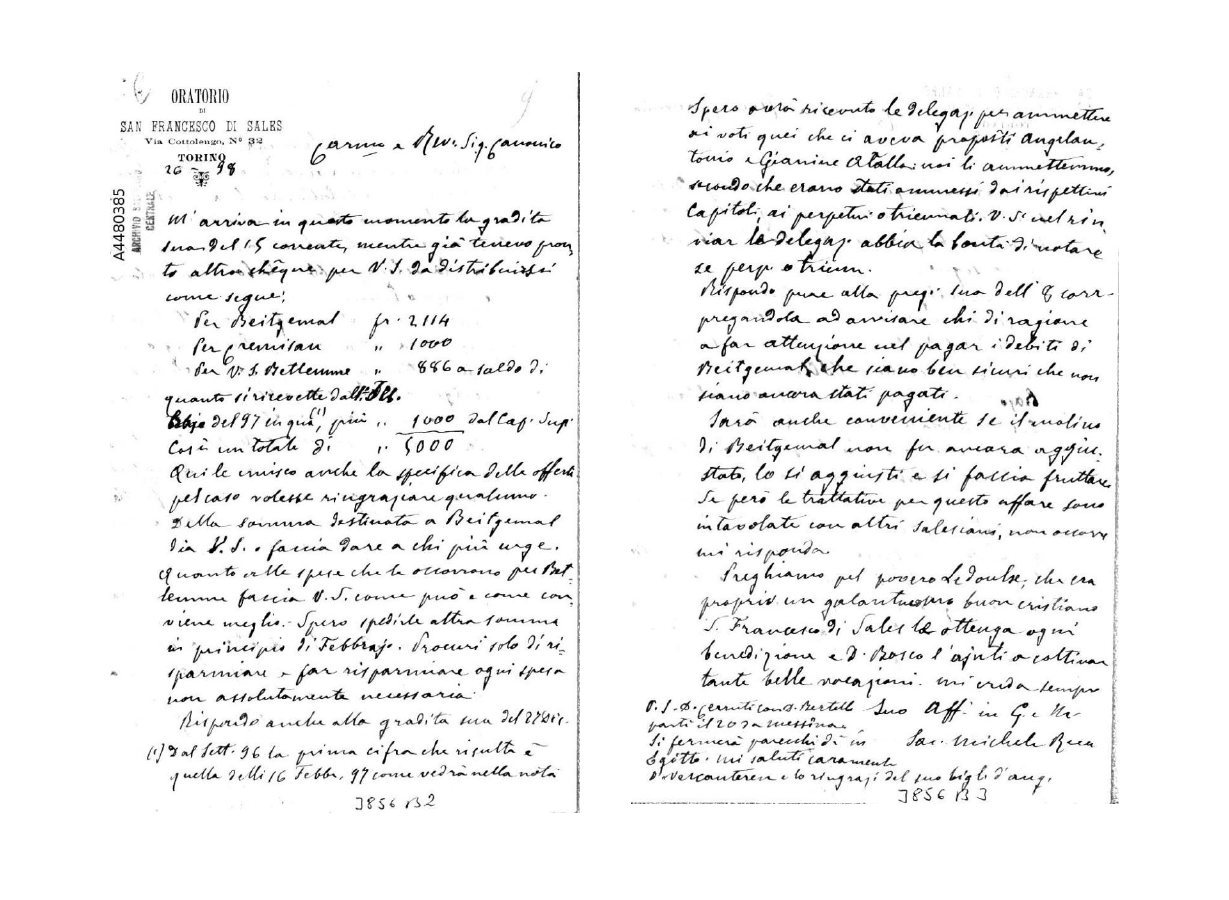 ORATORIO
DI
SAN FRANCESCO DI SALES
Via Cottolengo, N° 32
TORINO
26 98
9
A4480385
ARCHIVIO
CENTRALE
Carmo e Rev. Sig. Canonico
M'arriva in questo momento la gradita
sua del 15 corrente, mentre già tenevo pron
to altro chêque per V. S. da distribuirsi
come segue:
Per Beitgemal fr. 2114
Per Cremisan " 1000
Per V. S. Betlemme " 886 a saldo di
quanto si ricevette dall'
del 97 in qua (1), più " 1000 dal Cap. Sup.
Così un totale di " 5000
Qui le unisco anche la specifica delle offerte
pel caso volesse ringraziare qualcuno.
Della somma destinata a Beitgemal
dia V. S. o faccia dare a chi più urge.
Quanto alle spese che le occorrono per Bet-
lemme faccia V. S. come può e come con,
viene meglio. Spero spedirle altra somma
in principio di Febbrajo. Procuri solo di ri-
sparmiare e far risparmiare ogni spesa
non assolutamente necessaria.
Rispondo anche alla gradita sua del 27 Dic.
(1) Dal Sett. 96 la prima cifra che risulta è
quella delli 16 Febbr. 97 come vedrà nella nota
3856 B 2
Spero avrà ricevuto le delegaz. per ammettere
ai voti quei che ci aveva proposti Angelan,
tonio e Gianine Atalla: noi li ammettemmo,
secondo che erano stati ammessi dai rispettivi
Capitoli, ai perpetui o triennali. V. S. nel rin
viar le delegaz. abbia la bontà di notare
se perp. o trienn.
Rispondo pure alla preg. sua dell' 8 corr.
pregandola ad avvisare chi di ragione
a far attenzione nel pagar i debiti di
Beitgemal, che siano ben sicuri che non
siano ancora stati pagati.
Sarà anche conveniente se il molino
di Beitgemal non fu ancora aggiu.
stato, lo si aggiusti e si faccia fruttare
Se però le trattative per questo affare sono
intavolate con altri salesiani, non occorre
mi risponda.
Preghiamo pel povero Ledoulse, che era
proprio un galantuomo buon cristiano
S. Francesco di Sales le ottenga ogni
benedizione e D. Bosco l'ajuti a coltivar
tante belle vocazioni. mi creda sempre
Suo Aff. in G. e M.
Sac. Michele Rua
P. S. D. Cerruti con D. Bertello
partì il 20 da Messina
Si fermerà parecchi dì in
Egitto. mi saluti caramente
D. Vercauteren e lo ringrazj del suo bigl. d'aug.
3856 B 3